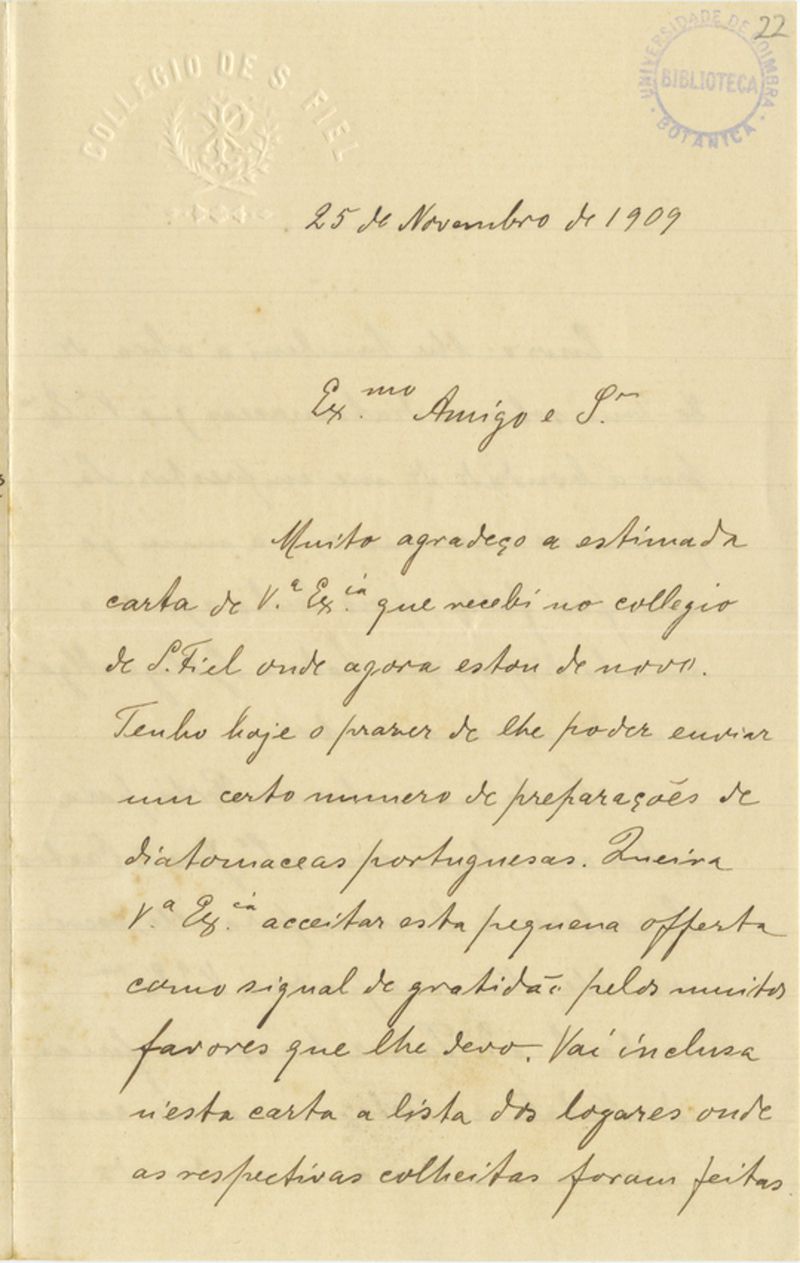 22
COLLEGIO DE S FIEL
UNIVERSIDADE DE COIMBRA
BIBLIOTECA
BOTANICA
25 de Novembro de 1909
Ex.mo Amigo e S.r
Muito agradeço a estimada
carta de V.a Ex.cia que recebi no collegio
de S. Fiel onde agora estou de novo.
Tenho hoje o prazer de lhe poder enviar
um certo numero de preparações de
diatomaceas portuguesas. Queira
V.a Ex.cia acceitar esta pequena offerta
como signal de gratidão pelos muitos
favores que lhe devo. Vai inclusa
n'esta carta a lista dos logares onde
as respectivas colheitas foram feitas